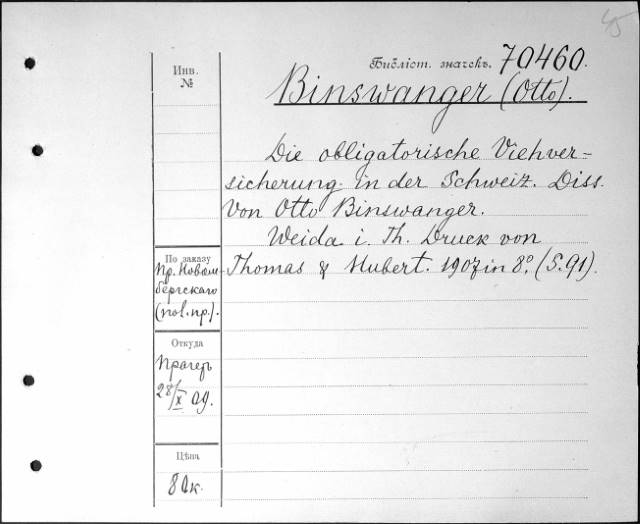 Библіот. значекъ. 70460.
Binswanger (Otto).
Инв.
№
Die obligatorische Viehver-
sicherung in der Schweiz. Diss.
von Otto Binswanger.
Weida i. Th. Druck von
Thomas & Hubert. 1907 in 8º. (S. 91).
По заказу
Пр. Новом-
бергскаго
(пол. пр.).
Откуда
Прагеръ
28/X 09.
Цѣна
80к.